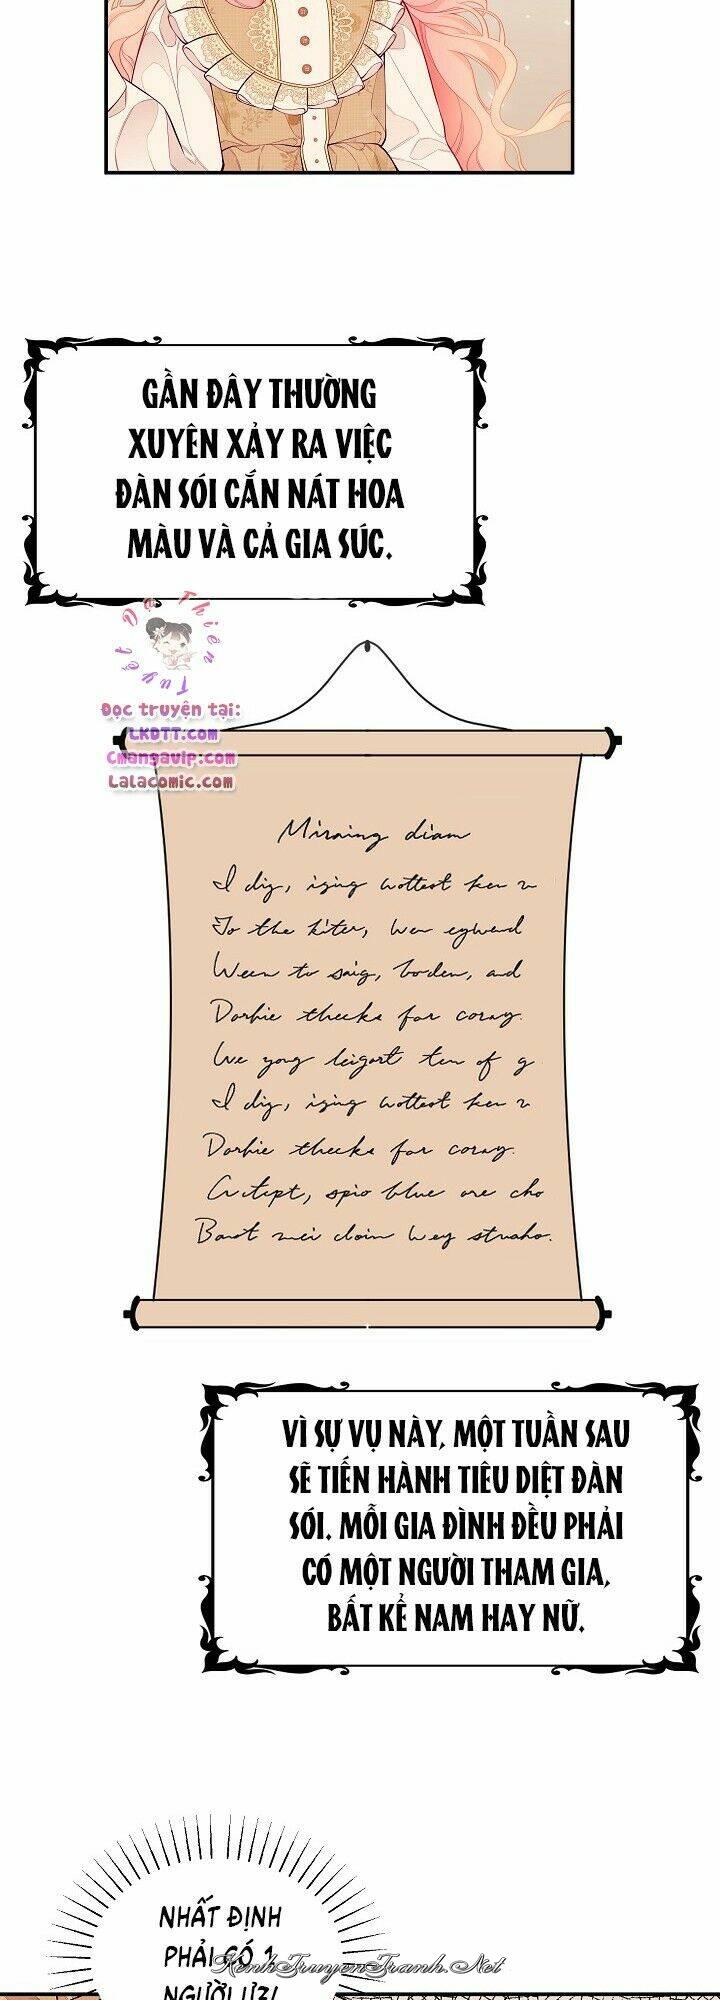 GẦN ĐÂY THƯỜNG
XUYÊN XẢY RA VIỆC
ĐÀN SÓI CẮN NÁT HOA
MÀU VÀ CẢ GIA SÚC.
Dạ Thiên Tuyết
Đọc truyện tại:
LKDTT.com
Cmangavip.com
Lalacomic.com
Miraing diam
I diz, ising wottest ken
To the kiter, Wen eyward
Ween to saig, boden, and
Dorhie thecks for coray.
We yong leigart ten of g
I diz, ising wottest ken
Dorhie thecks for coray.
spio blue ore cho
Baot mei cloin wey struaho.
VÌ SỰ VỤ NÀY, MỘT TUẦN SAU
SẼ TIẾN HÀNH TIÊU DIỆT ĐÀN
SÓI. MỖI GIA ĐÌNH ĐỀU PHẢI
CÓ MỘT NGƯỜI THAM GIA,
BẤT KỂ NAM HAY NỮ.
NHẤT ĐỊNH
PHẢI CÓ 1
NGƯỜI Ư?!
KenhTruyenTranh.Net